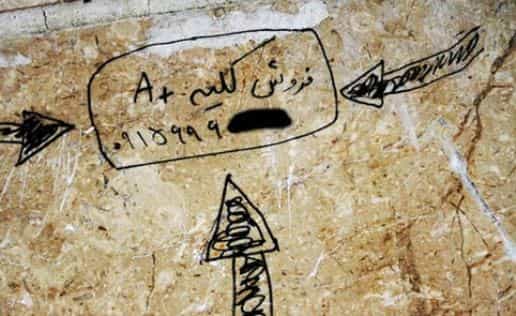 فروش کلیه +A
۰۹۱۵۹۹۹